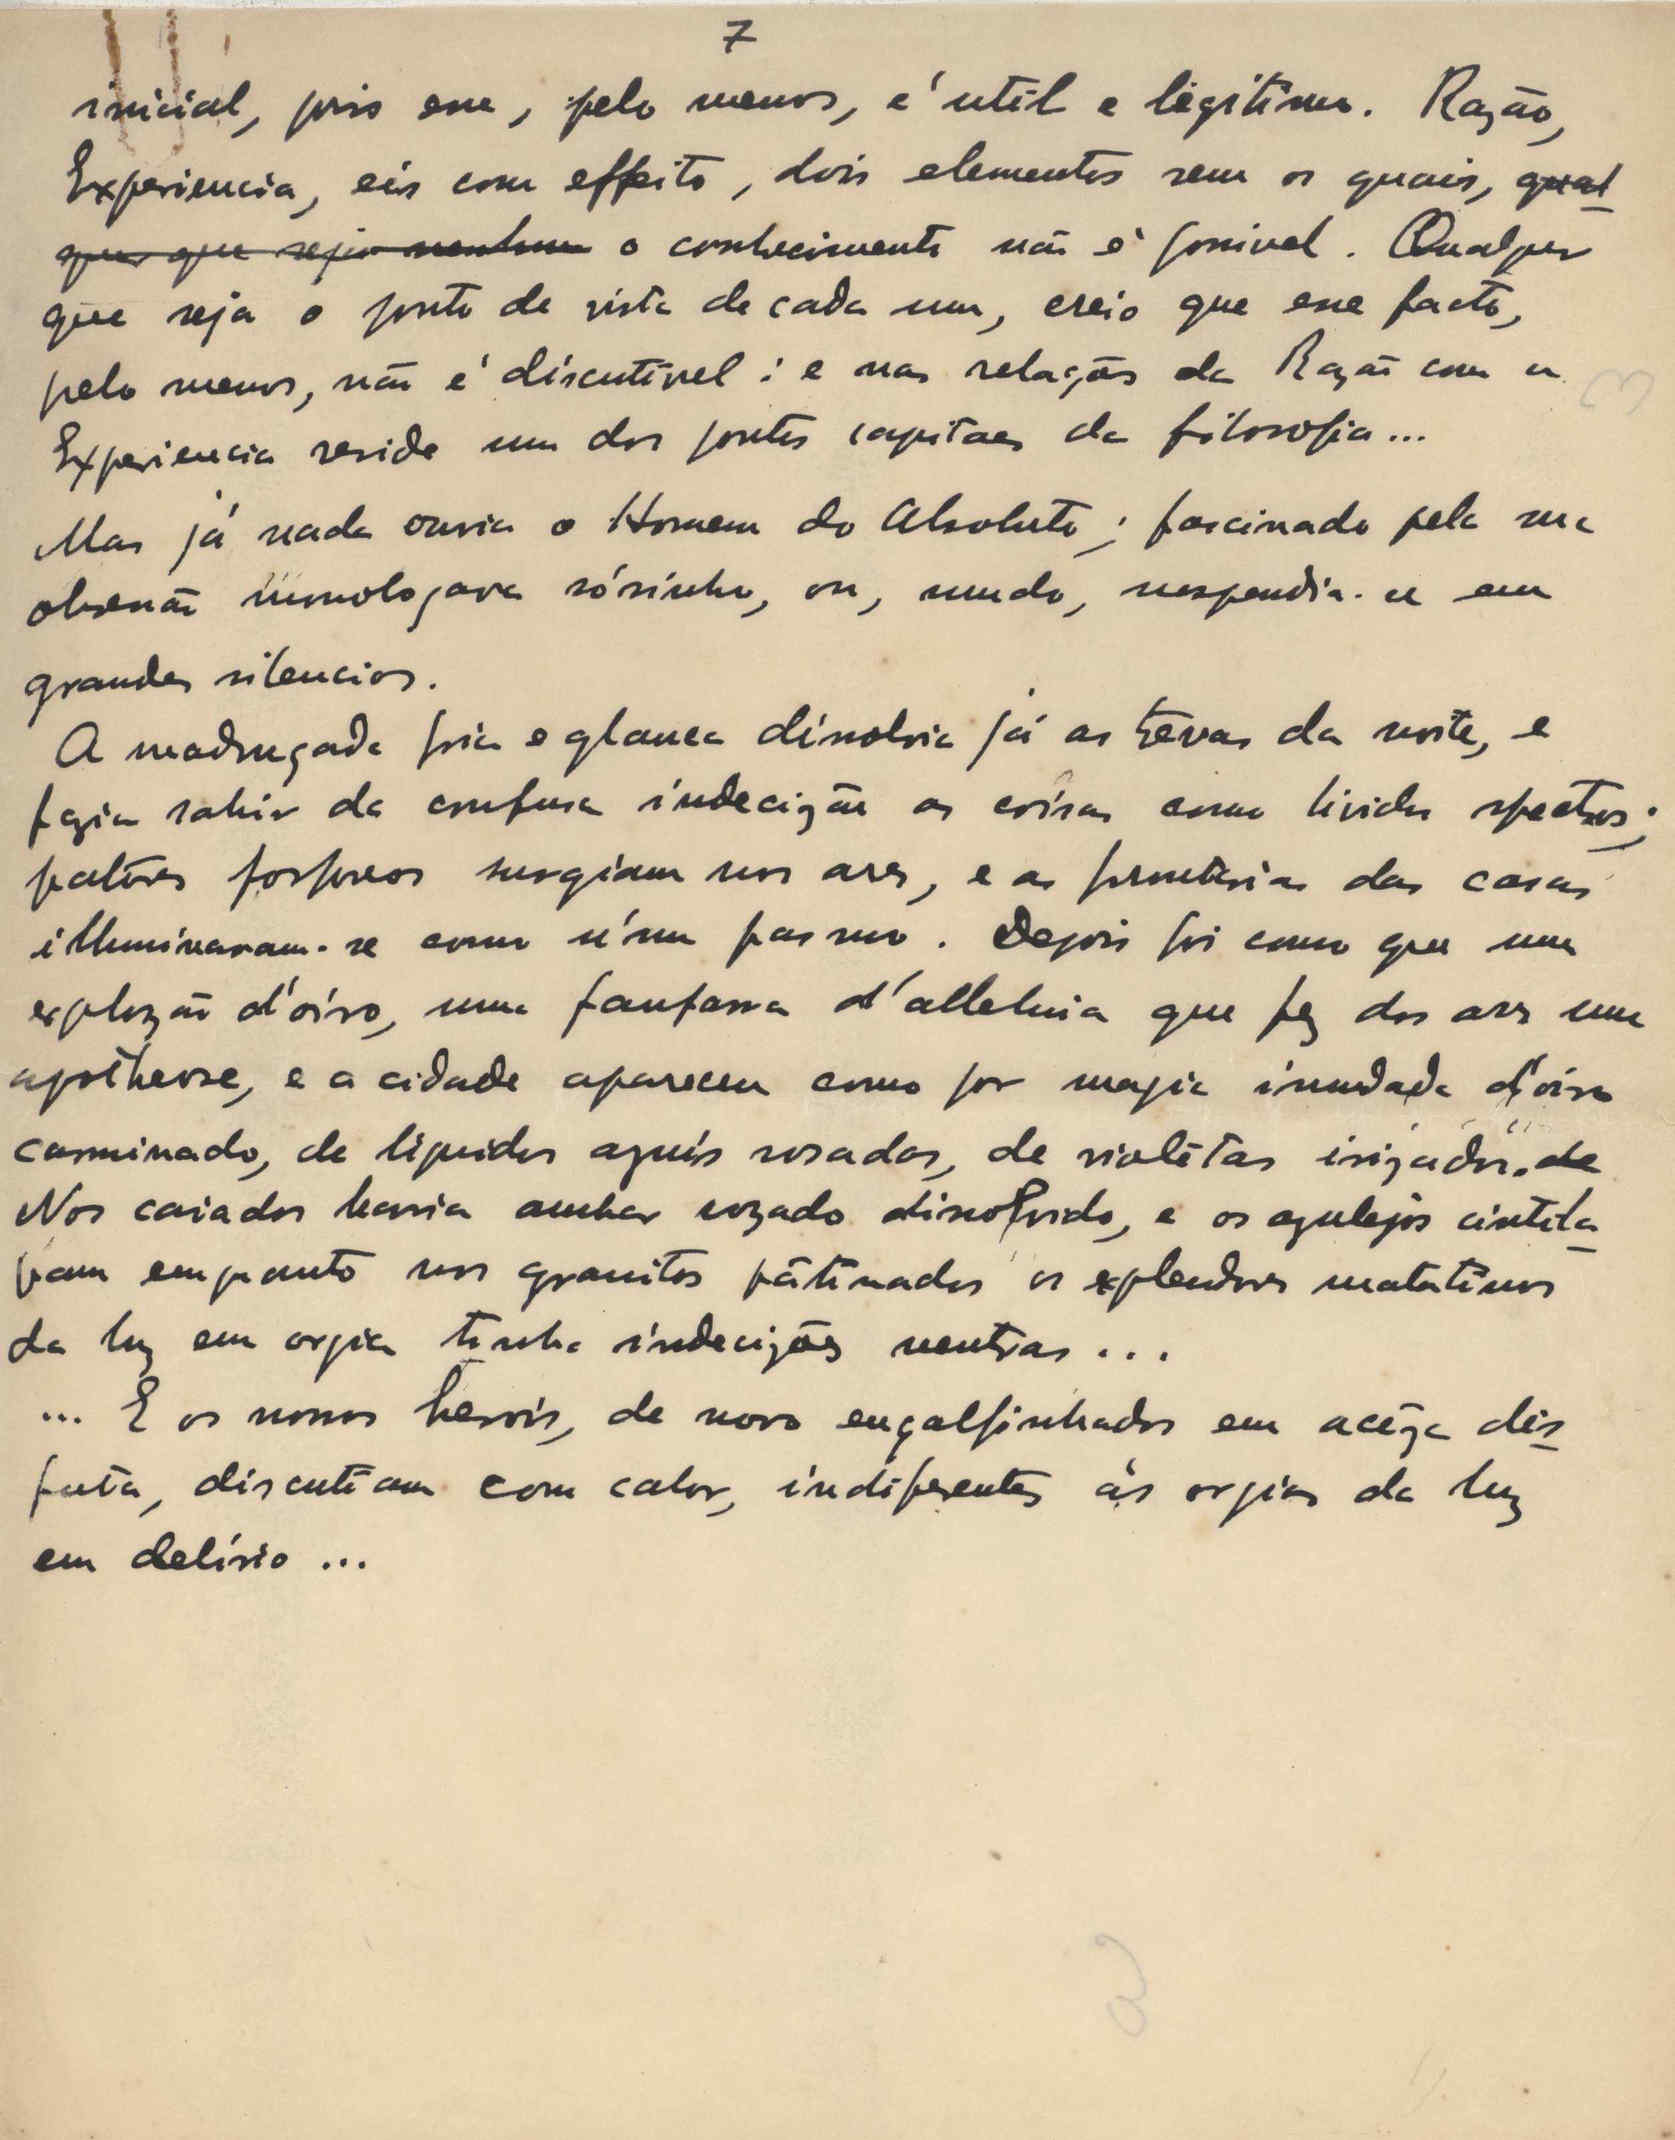 7
inicial, pois esse, pelo menos, é util e legitimo. Razão,
Experiencia, eis com effeito, dois elementos sem os quais, qual-
quer que seja nenhum o conhecimento não é possivel. Qualquer
que seja o ponto de vista de cada um, creio que esse facto,
pelo menos, não é discutivel: e nas relações da Razão com a
Experiencia reside um dos pontos capitaes da filosofia...
Mas já nada ouvia o Homem do Absoluto; fascinado pela sua
obsessão monologava sósinho, ou, mudo, suspendia-se em
grandes silencios.
A madrugada fria e glauca dissolvia já as trevas da noite, e
fazia sahir da confusa indecizão as coisas como lividos spectros;
palores fosforeos surgiam nos ares, e as frontarias das casas
illuminavam-se como n'um pasmo. Depois foi como que uma
explozão d'oiro, uma fanfarra d'alleluia que fez dos ares uma
apotheose, e a cidade apareceu como por magia inundada d'oiro
carminado, de liquidos azuis rosados, de violetas irizados. de
Nos caiados havia ambar rozado dissolvido, e os azulejos cintila-
vam emquanto nos granitos pátinados os explendores matutinos
da luz em orgia tinha indecizões neutras...
... E os nossos herois, de novo engalfinhados em acêza dis-
puta, discutiam com calor, indiferentes ás orgias da luz
em delírio...